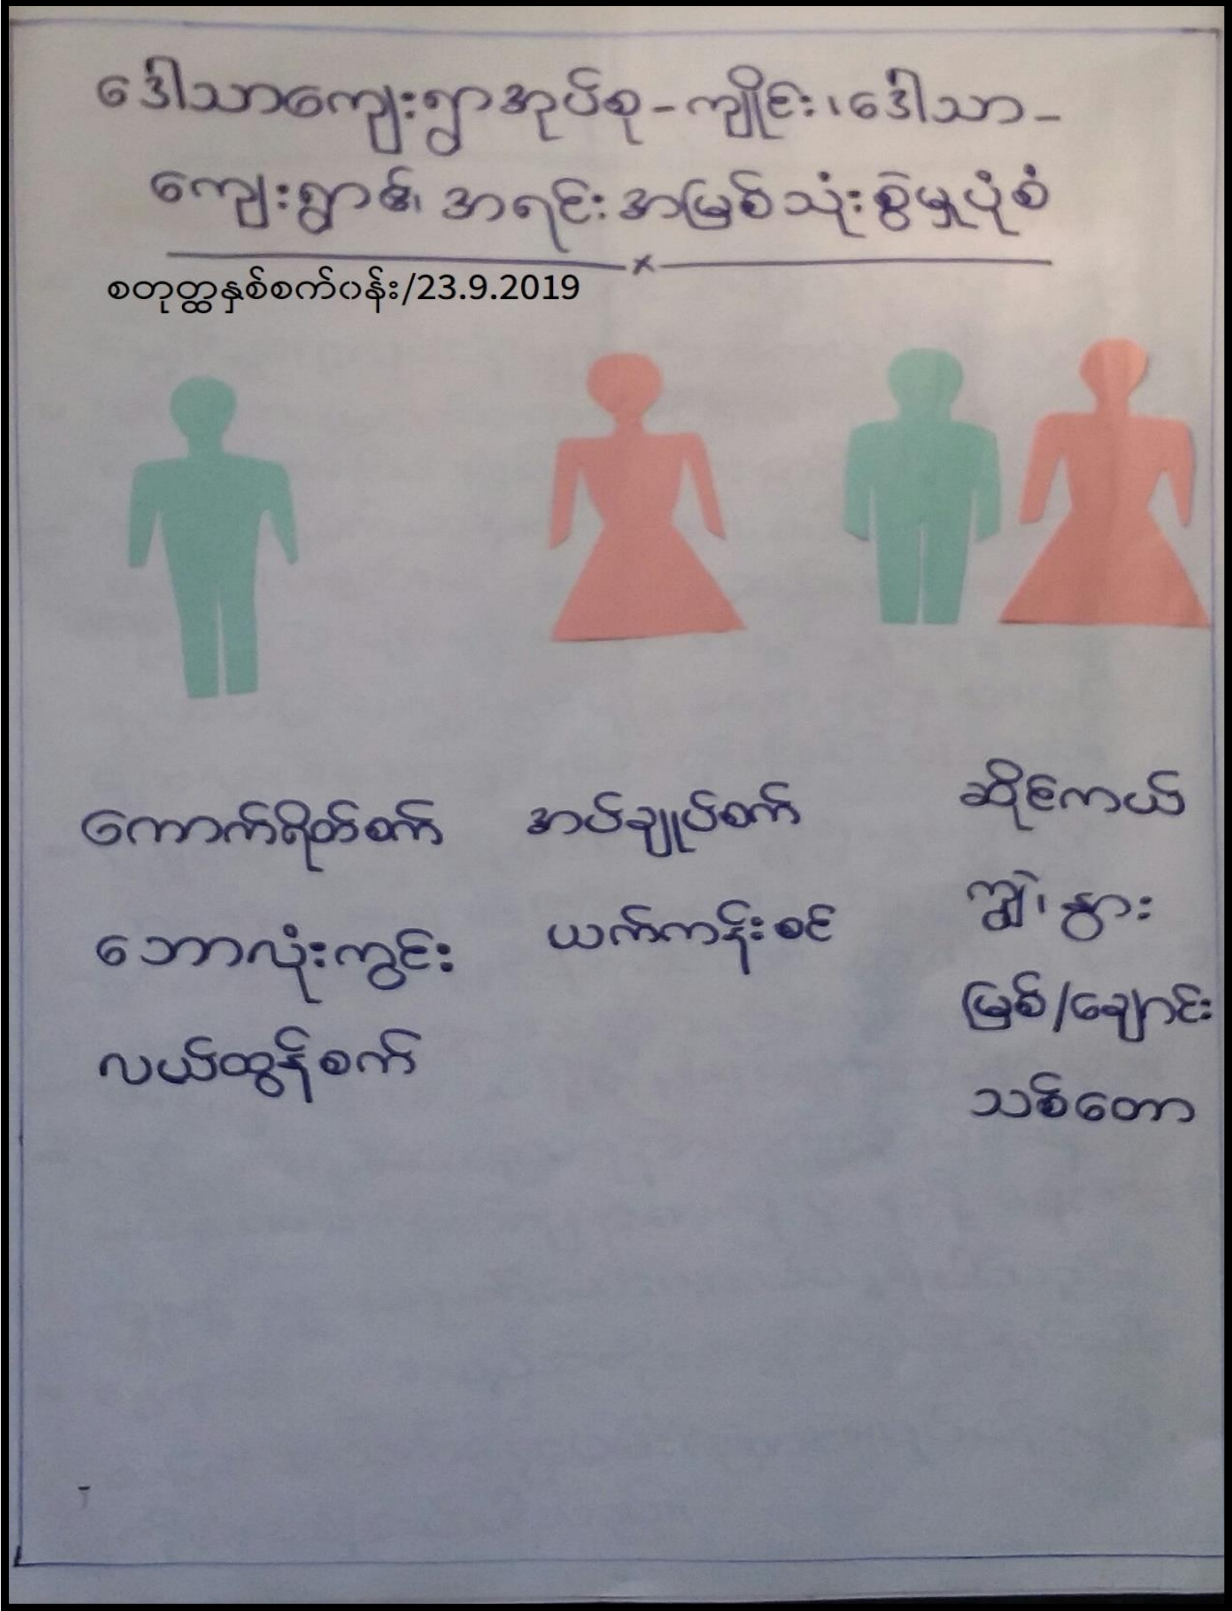 ဒေါသာကျေးရွာအုပ်စု-ကျိုင်း၊ဒေါသာ-
ကျေးရွာ၏ အရင်းအမြစ်သုံးစွဲမှုပုံစံ
စတုတ္ထနှစ်စက်ဝန်း/23.9.2019
ကောက်ရိတ်စက်
ဘောလုံးကွင်း
လယ်ထွန်စက်
အပ်ချုပ်စက်
ယက်ကန်းစင်
ဆိုင်ကယ်
ကျွဲ၊နွား
မြစ်/ချောင်း
သစ်တော